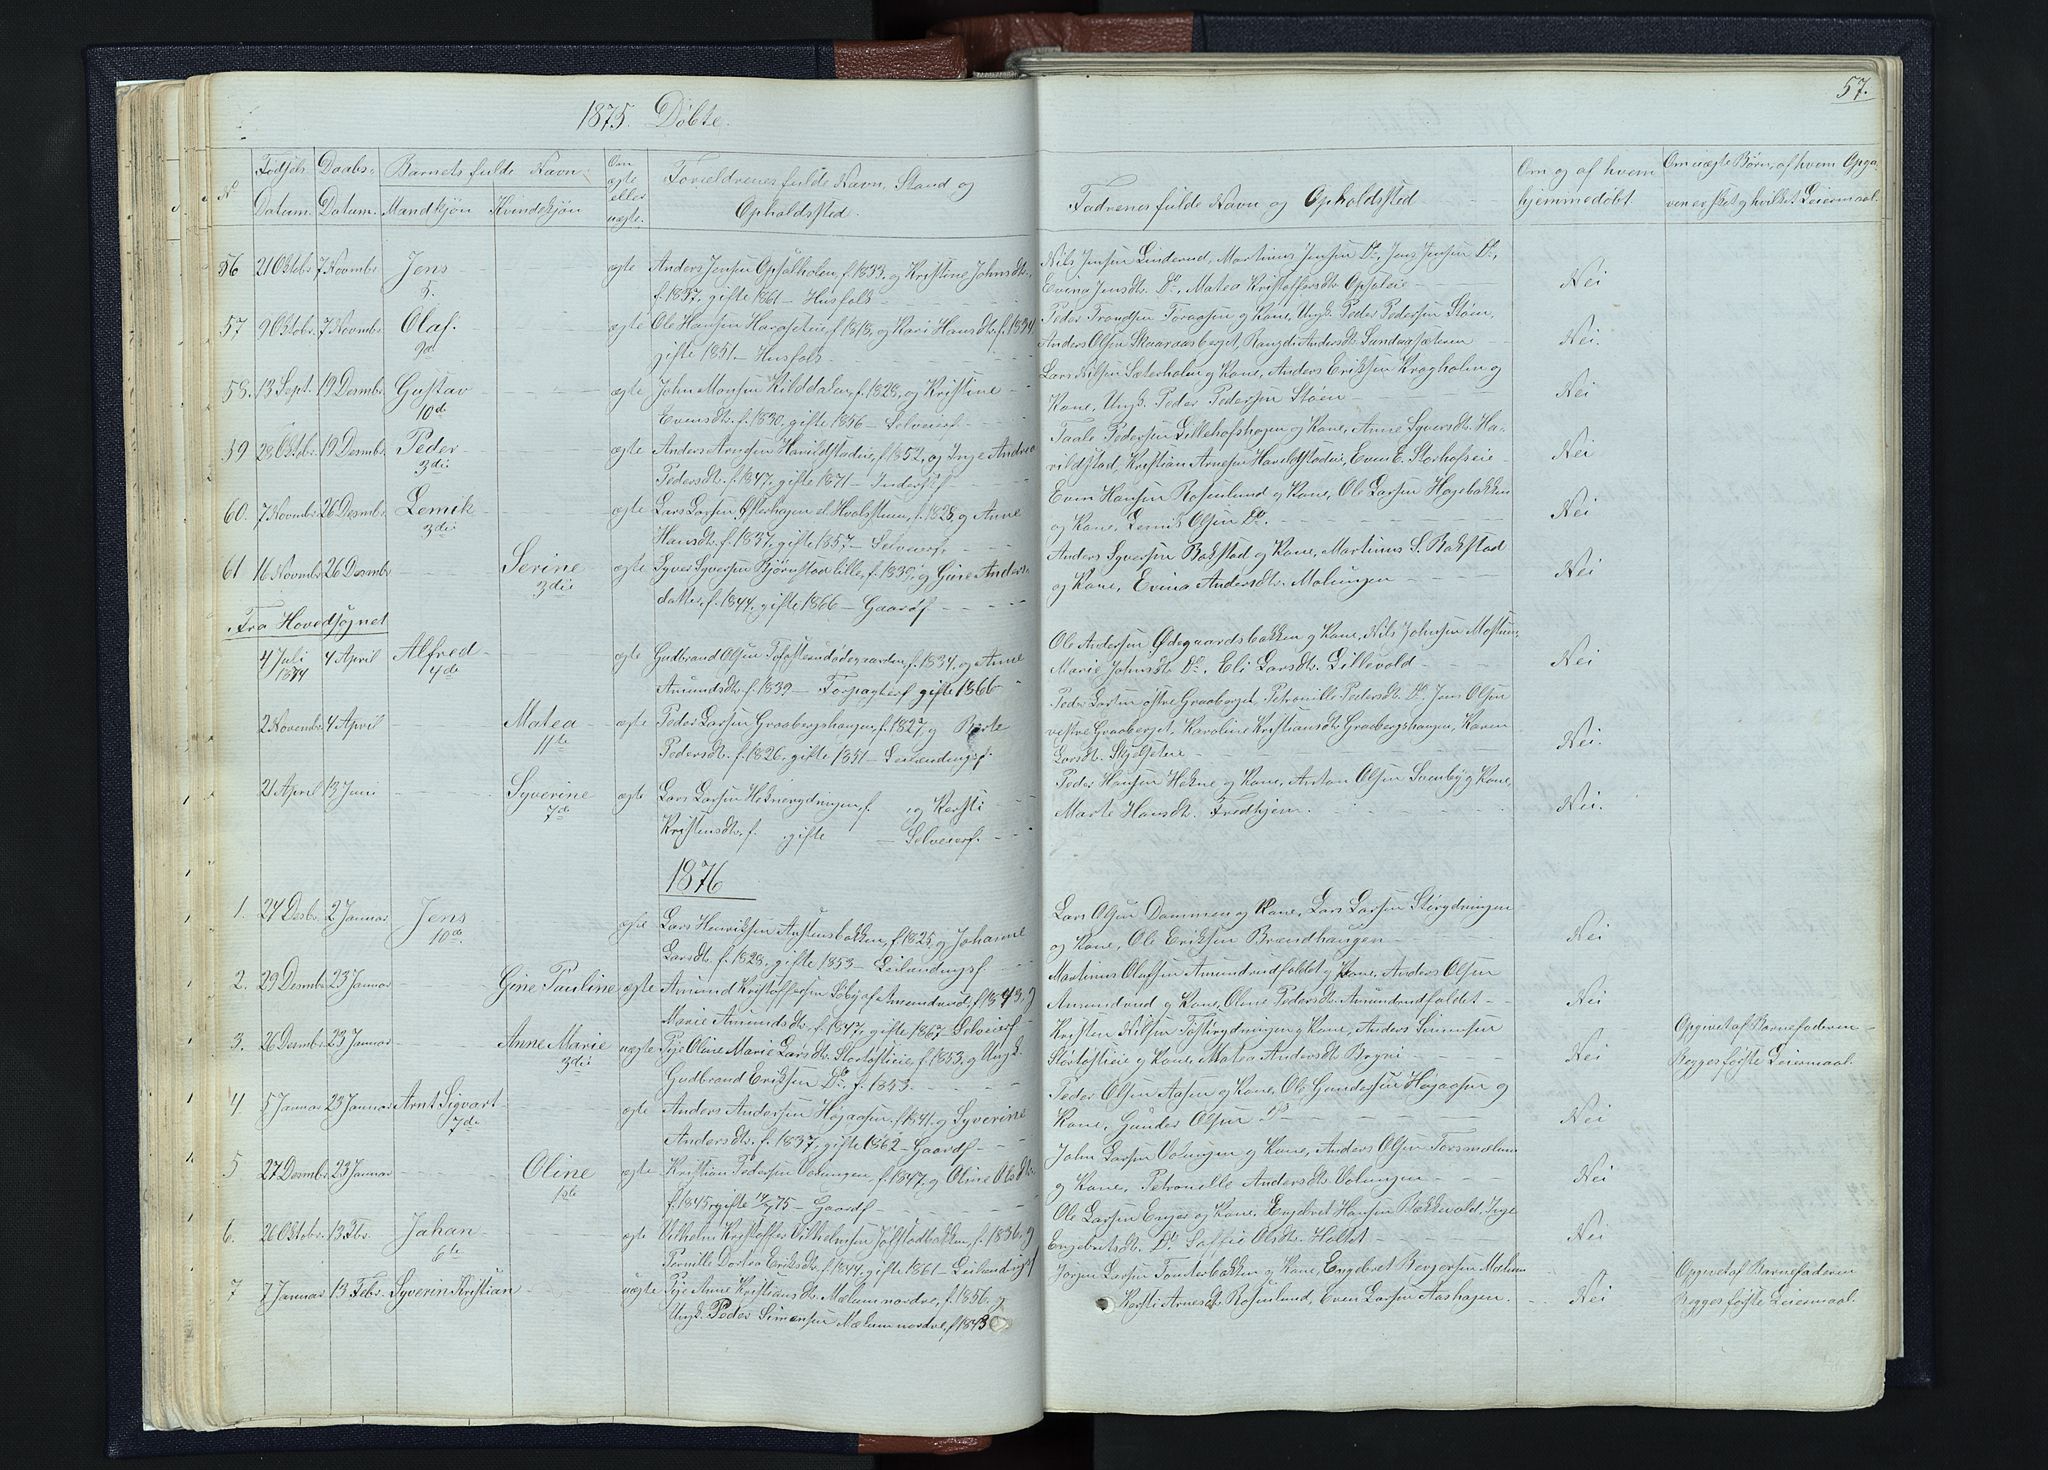 57.
1875. Döbte.
No
Fødsels Datum.
Daabs- Datum.
Barnets fulde Navn
Mandkjön Kvindekjön
Om ægte eller uægte.
Forældrenes fulde Navn, Stand og
Opholdssted.
Fadrenes fulde Navn og Opholdssted
Om og af hvem
hjemmedöbt.
Om uægte Børn, af hvem Opga-
ven er sket og hvilket Leiermaal.
56 21 Oktbr. 7 Novmbr. Jens 5. ægte Anders Jensen Opsalholen, f. 1833, og Kristine Johnsdtr.
f. 1837, gifte 1861 — Husfolk
Nils Jensen Linderud, Martinus Jensen Do, Jens Jensen Do,
Evina Jensdtr. Do, Matea Kristoffersdtr. Opsaleie Nei
57 9 Oktbr. 7 Novmbr. Olaf. 9de ægte Ole Hansen Haraseteie, f. 1818, og Kari Hansdtr. f. 1834
gifte 1851 — Husfolk
Peder Trondsen Toraasen og Kone, Ungk. Peder Pedersen Stöen,
Anders Olsen Skaaraasberget, Rangdi Andersdtr. Sundsaasæteren Nei.
58. 13 Sept. 19 Desmbr. Gustav 10de ægte John Monsen Kilddalen, f. 1828, og Kristine
Evensdtr. f. 1830, gifte 1856 — Selveierf.
Lars Nilsen Sæterholen og Kone, Anders Eriksen Kragholen og
Kone, Ungk. Peder Pedersen Stöen Nei
59 28 Oktbr. 19 Desmbr. Peder 3die ægte Anders Arnesen Havildstadeie, f. 1852, og Inge Andrea
Pedersdtr. f. 1847, gifte 1871 — Inderstf.
Taale Pedersen Lillehofshagen og Kone, Anne Syversdtr. Ha-
vildstad, Kristian Arnesen Havildstadeie, Even E. Storhofseie Nei
60. 7 Novmbr. 26 Desmbr. Lemik 3die ægte Lars Larsen Østerhagen el. Hvalssteen, f. 1828, og Anne
Hansdtr. f. 1837, gifte 1857 — Selveierf.
Even Hansen Rosenlund og Kone, Ole Larsen Hagebakken
og Kone, Lemik Olsen Do. Nei
61 16 Novmbr. 26 Desmbr. Serine 3die ægte Syver Syversen Bjørnstad lille, f. 1839, og Gine Anders-
datter, f. 1844, gifte 1866 — Gaardf.
Anders Syversen Bakstad og Kone, Martinus S. Bakstad
og Kone, Evina Andersdtr. Malungen Nei
Fra Hovedsognet
4 Juli 1874 4 April Alfred 4de ægte Gudbrand Olsen Tofastensødegaarden, f. 1834, og Anne
Amundsdtr. f. 1839 — Forpagterf. gifte 1866
Ole Andersen Ødegaardsbakken og Kone, Nils Johnsen Mosteen
Marie Johnsdtr. Do, Eli Larsdtr. Lillevold Nei
2 Novembr. 4 April Matea 11te ægte Peder Larsen Graabergshaugen, f. 1827, og Berte
Pedersdtr. f. 1826, gifte 1851 — Leilændingsf.
Peder Larsen østre Graaberget, Petronille Pedersdtr. Do, Jens Olsen
vestre Graaberget, Karoline Kristiansdtr. Graabergshaugen, Karen
Larsdtr. Skjelseteie Nei.
21 April 13 Juni Syverine 7de ægte Lars Larsen Heknerydningen, f. og Kersti
Kristensdtr. f. gifte — Selveierf.
Peder Hansen Hekne og Kone, Anton Olsen Svenby og Kone,
Marte Hansdtr. Fredhjem. Nei.
1876
1. 24 Desbr. 2 Januar Jens 10de ægte Lars Henriksen Austensbakken, f. 1825, og Johanne
Larsdtr. f. 1828, gifte 1853 — Leilændingsf.
Lars Olsen Dammen og Kone, Lars Larsen Störydningen
og Kone, Ole Eriksen Brændhaugen Nei
2. 29 Desmbr. 23 Januar Gine Pauline ægte Amund Kristoffersen Löbyaf Amundrud, f. 1843, og
Marie Amundsdtr. f. 1847, gifte 1867 Selveierf.
Martinus Olafsen Amundrudfaldet og Kone, Anders Olsen
Amundrud og Kone, Oline Pedersdtr. Amundrudfaldet Nei
3. 26 Desmbr. 23 Januar Anne Marie 3die uægte Pige Oline Marie Larsdtr. Stortofteie, f. 1853, og Ungk.
Gudbrand Eriksen Do. f. 1853.
Kristen Nilsen Toftrydningen og Kone, Anders Simensen
Stortofteie og Kone, Matea Andersdtr. Bryni Nei Opgivet af Barnefaderen
Begges første Leiermaal.
4 5 Januar 23 Januar Arnt Sigvart 7de ægte Anders Andersen Høgaasen, f. 1841, og Syverine
Andersdtr. f. 1837, gifte 1862 — Gaardf.
Peder Olsen Aasen og Kone, Ole Gundersen Høgaasen og
Kone, Gunder Olsen Do Nei
5 27 Desmbr. 23 Januar Oline 1ste ægte Kristian Pedersen Volungen, f. 1847, og Oline Olsdtr.
f. 1845, gifte 75 — Gaardf
John Larsen Volungen og Kone, Anders Olsen Torsmælum
og Kone, Petronelle Andersdtr. Volungen Nei
6. 26 Oktbr. 13 Fbr. Johan 6te ægte Vilhelm Kristoffer Vilhelmsen Jølstadbakken, f. 1836, og
Pernille Dortea Eriksdtr. f. 1844, gifte 1861 — Leilændingsf
Ole Larsen Enger og Kone, Engebret Hansen Bækkevold, Inge
Engebretsdtr. Do Soffie Olsdtr. Holtet Nei
7 7 Januar 13 Febr. Syverin Kristian uægte Pige Anne Kristiansdtr. Mælum nordre, f. 1856, og
Ungk. Peder Simensen Mælum nordre, f. 1843
Jörgen Larsen Tonderbakken og Kone, Engebret Bergersen Mælum
Kersti Arnesdtr. Rosenlund, Even Larsen Aashagen. Nei Opgivet af Barnefaderen
Begges første Leiermaal.